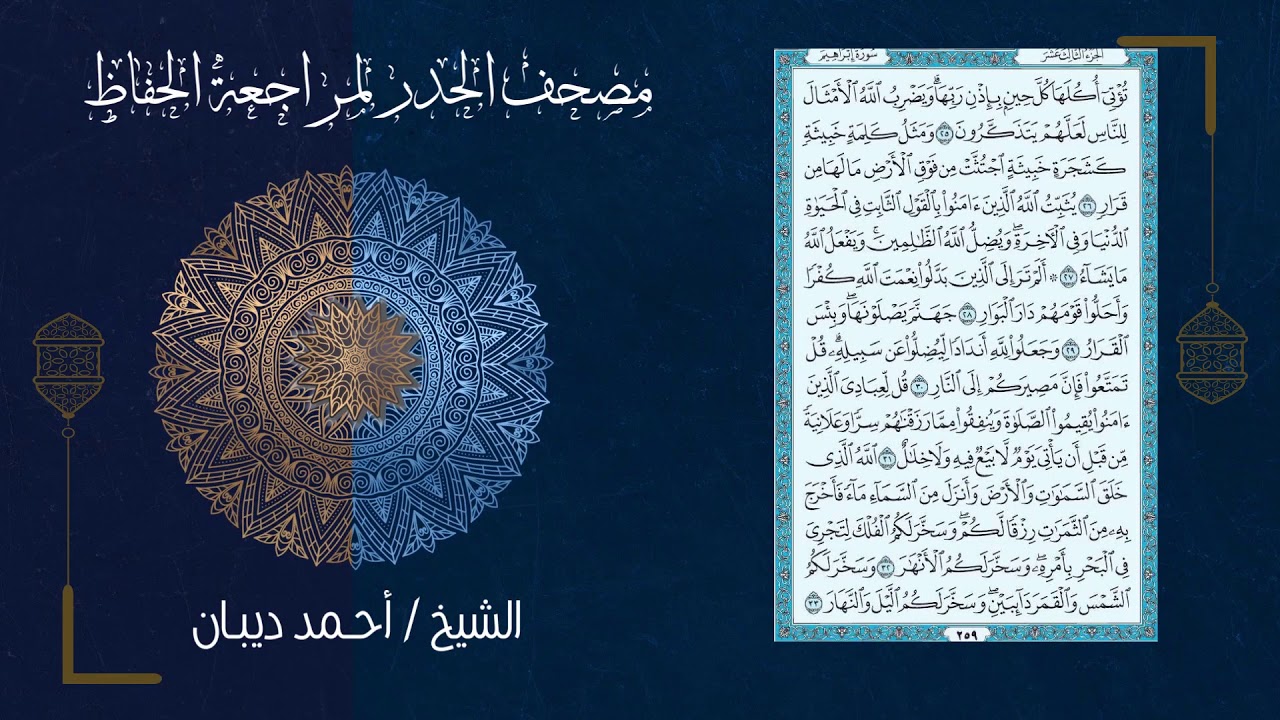 مصحف الحدر لمراجعة الحفاظ
الشيخ / أحمد ديبان
الجزء الثالث عشر
سورة إبراهيم
تُؤْتِىٓ أُكُلَهَا كُلَّ حِينٍۭ بِإِذْنِ رَبِّهَاۗ وَيَضْرِبُ ٱللَّهُ ٱلْأَمْثَالَ
لِلنَّاسِ لَعَلَّهُمْ يَتَذَكَّرُونَ ٢٥ وَمَثَلُ كَلِمَةٍ خَبِيثَةٍ
كَشَجَرَةٍ خَبِيثَةٍ ٱجْتُثَّتْ مِن فَوْقِ ٱلْأَرْضِ مَا لَهَا مِن
قَرَارٍ ٢٦ يُثَبِّتُ ٱللَّهُ ٱلَّذِينَ ءَامَنُوا۟ بِٱلْقَوْلِ ٱلثَّابِتِ فِى ٱلْحَيَوٰةِ
ٱلدُّنْيَا وَفِى ٱلْـَٔاخِرَةِۖ وَيُضِلُّ ٱللَّهُ ٱلظَّـٰلِمِينَۚ وَيَفْعَلُ ٱللَّهُ
مَا يَشَآءُ ٢٧ ۞ أَلَمْ تَرَ إِلَى ٱلَّذِينَ بَدَّلُوا۟ نِعْمَتَ ٱللَّهِ كُفْرًا
وَأَحَلُّوا۟ قَوْمَهُمْ دَارَ ٱلْبَوَارِ ٢٨ جَهَنَّمَ يَصْلَوْنَهَاۖ وَبِئْسَ
ٱلْقَرَارُ ٢٩ وَجَعَلُوا۟ لِلَّهِ أَندَادًا لِّيُضِلُّوا۟ عَن سَبِيلِهِۦۗ قُلْ
تَمَتَّعُوا۟ فَإِنَّ مَصِيرَكُمْ إِلَى ٱلنَّارِ ٣٠ قُل لِّعِبَادِىَ ٱلَّذِينَ
ءَامَنُوا۟ يُقِيمُوا۟ ٱلصَّلَوٰةَ وَيُنفِقُوا۟ مِمَّا رَزَقْنَـٰهُمْ سِرًّا وَعَلَانِيَةً
مِّن قَبْلِ أَن يَأْتِىَ يَوْمٌ لَّا بَيْعٌ فِيهِ وَلَا خِلَـٰلٌ ٣١ ٱللَّهُ ٱلَّذِى
خَلَقَ ٱلسَّمَـٰوَٰتِ وَٱلْأَرْضَ وَأَنزَلَ مِنَ ٱلسَّمَآءِ مَآءً فَأَخْرَجَ
بِهِۦ مِنَ ٱلثَّمَرَٰتِ رِزْقًا لَّكُمْۖ وَسَخَّرَ لَكُمُ ٱلْفُلْكَ لِتَجْرِىَ
فِى ٱلْبَحْرِ بِأَمْرِهِۦۖ وَسَخَّرَ لَكُمُ ٱلْأَنْهَـٰرَ ٣٢ وَسَخَّرَ لَكُمُ
ٱلشَّمْسَ وَٱلْقَمَرَ دَآئِبَيْنِۖ وَسَخَّرَ لَكُمُ ٱلَّيْلَ وَٱلنَّهَارَ ٣٣
٢٥٩